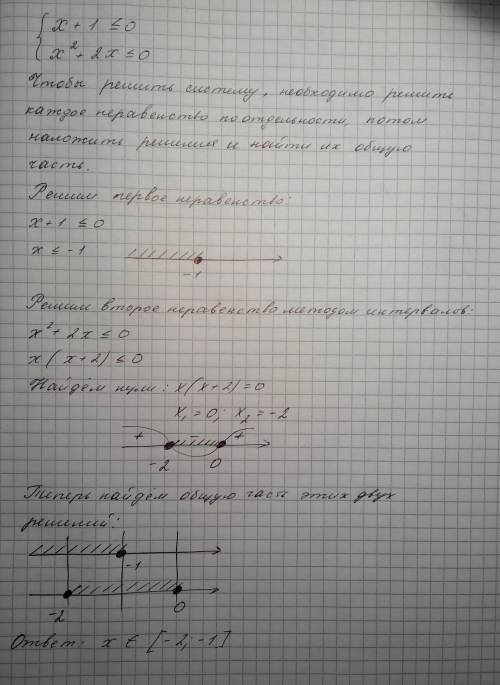 { x + 1 ≤ 0
x² + 2x ≤ 0
Чтобы решить систему, необходимо решить
каждое неравенство по отдельности, потом
наложить решения и найти их общую
часть.
Решим первое неравенство:
x + 1 ≤ 0
x ≤ -1
-1
Решим второе неравенство методом интервалов:
x² + 2x ≤ 0
x(x+2) ≤ 0
Найдём нули: x(x+2) = 0
x₁ = 0; x₂ = -2
+ − +
-2 0
Теперь найдём общую часть этих двух
решений:
-1
-2 0
Ответ: x ∈ [-2; -1]